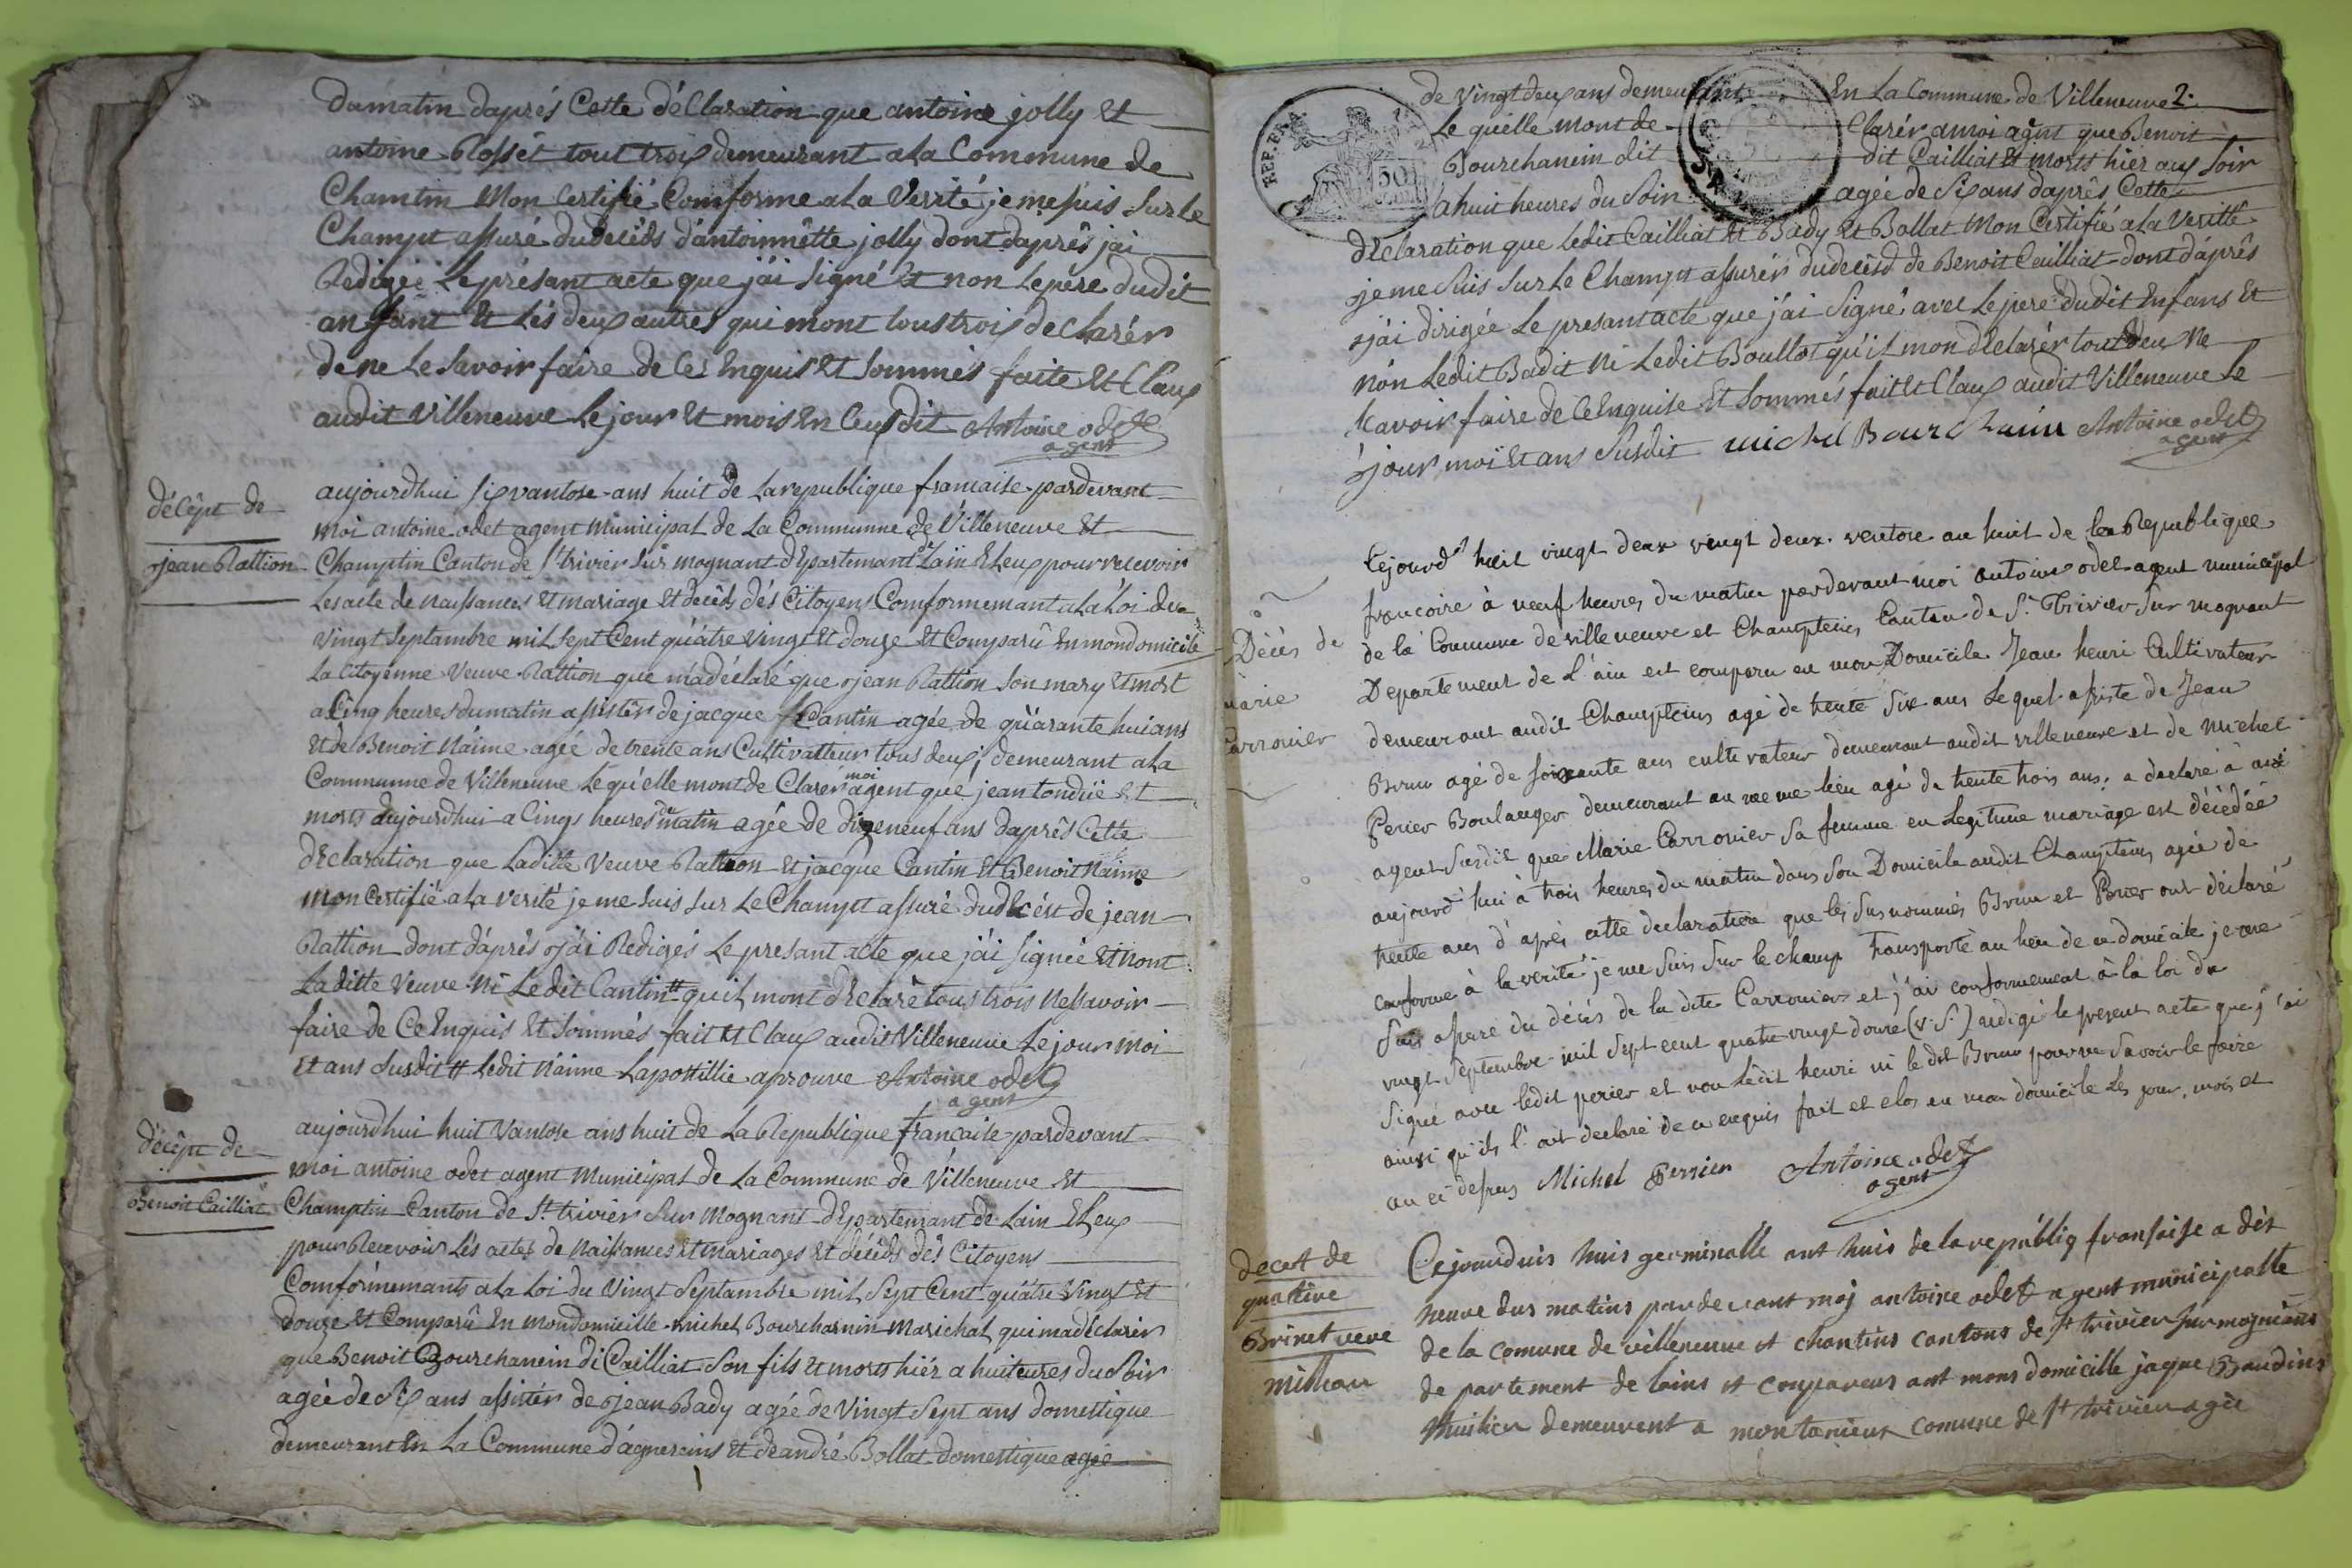 dumatin daprés Cette déClaration que antoine jolly Et
antoine Rossét tout troix demeurant ala Commune de
Chamtin Mon Certifié Comforme ala Verité je mesuis Surle
Champt assuré dudeséds d'antoinnêtte jolly dont daprês jai
Redigée Leprésant acte que jái Signé Et non Lepére dudit
anfant Et Lés deux autres qui mont toustrois deClarér
de ne Le Savoir faire de Ces Enquis Et Sommés faite Et Claux
audit Villeneuve Lejour Et mois En Ceusdit Antoine odet
agent
décépt de
jean Rattion
aujourdhui six vantose ans huit de Larepublique francaise pardevant
moi antoine odet agent Municipal de La Communne de Villeneuve Et
Champtin Canton de St trivier Sur mognant dEpartemant de Lain ELeux pour recevoir
Les acte de naissances Et mariage Et deceds dés Citoyens Comformemant ala Loi du
vingt Septambre mil Sept Cent quátre vingt Et douze Et Comparû En mondomicile
La Citoyenne Veuve Rattion que mádéclaré que jean Rattion Son mary Et mort
a Cinq heures dumatin assistér de jacque Cantin agée de quárante huit ans
Et de Benoit Naime agée de trente ans Cultivatteur tous deux demeurant ala
Communne de Villeneuve Lequélle mont de Clarér moi agent que jean tondüe Et
morts aujourdhui a Cinqs heures du matin agée de dixeneuf ans daprês Cette
dEclaration que Laditte Veuve Rattion Et jacque Cantin Et Benoit Naime
mon Certifié ala verité je me Suis Sur Le Champt assuré dudecést de jean
Rattion dont dáprês jái Redigés Le presant acte que jái Signée Et nont
Laditte Veuve Ni Ledit Cantin tt quil mont dEclaré tous trois Nesavoir
faire de Ce Enquis Et Sommés fait Et Claux audit Villeneuve Lejour moi
Et ans Susdit tt Ledit Náime Lapostillie aprouve Antoine odet
agent
décépt de
Benoit Cailliat
aujourdhui huit Vantose ans huit de La Republique francaise pardevant
moi antoine odet agent Municipal de La Commune de Villeneuve Et
Champtin Canton de St trivier Sur Mognant dEpartemant de Lain ELeux
pour Recevoir Lés actes de Naissances Et Mariages Et décéds dés Citoyens
Comformemants ala Loi du Vingt Septambre mil Sept Cent quátre Vingt Et
douze Et Comparû En mondomicille michel Bourcharnin Marichal qui madéclarér
que Benoit Bourchanein di Cailliat Son fils Et morts hiér a huiteures du Soir
agée de Six ans assistér de jean Bady agée de Vingt Sept ans domestique
demeurant En La Commune dágnereins Et de andré Bollat domestique agée
de Vingt deux ans demeurant En La Commune de Villeneuve 2.
Le quélle mont de Clarér amoi agent que Benoit
Bourchanein dit dit Cailliat Et morts hiér aux Soir
ahuit heures du Soir agée de Six ans daprês Cette
dEclaration que Ledit Cailliat Et Bady Et Bollat Mon Certifié ala Veritté
je me Suis Sur Le Champt assurér dudecésd de Benoit Cailliat dont dáprês
jái dirigée Le presant acte que jái Signé avec Lepere dudit Enfans Et
nón Ledit Badit Ni Ledit Boullot quil mon dEclarér tout deux Ne
Savoir faire de Ce Enquise Et Sommés fait Et Claux audit Villeneuve Le
jour moi Et ans Susdit michel Bourchanin Antoine odet
agent
Décès de
marie
Carronier
Cejourd'huit vingt deux vingt deux ventose an huit de la Republique
francoise à neuf heures du matin pardevant moi antoine odet agent municipal
de la Commune de villeneuve et Champteins Canton de St. Trivier Sur mognant
Departement de L'ain est comparu en mon Domicile Jean henri Cultivateur
demeurant audit Champteins agé de trente Six ans Lequel assiste de Jean
Brun agé de soixante ans cultivateur demeurant audit villeneuve et de Michel
Perier Boulanger demeurant au meme lieu agé de trente trois ans, a declaré à moi
agent Susdit que Marie Carronier Sa femme en Legitime mariage est décédée
aujourd'hui à trois heures du matin dans Son Domicile audit Champteins agée de
trente ans d'après cette declaration que les Susnommés Brun et Perier ont déclaré
conforme à la verité je me suis Sur le champ transporté au lieu de ce domicile je me
Suis assuré du décès de la dite Carronier et j'ai conformement à la loi du
vingt Septembre mil Sept cent quatre vingt douze (v.S.) redigé le present acte que j'ai
Signé avec ledit perier et non Ledit henri ni le dit Brun pour ne Savoir le faire
ainsi qu'ils l'ont declaré de ce enquis fait et clos en mon domicile Les jour, mois et
an ci dessus Michel Perrier Antoine odet
agent
decert de
quative
Brinet veve
milliau
Cejourduis huis germinalle ant huis de la repúbliq fransaise a dit
neuve dus matins pardevant moj antoine odet agent municipalle
de la comune de villeneuve et chantins cantons de st trivier sur mogniens
de partement de loins et conpareus ant mons domicille jaque Baudins
demeurent a montanieux comune de st trivier agée